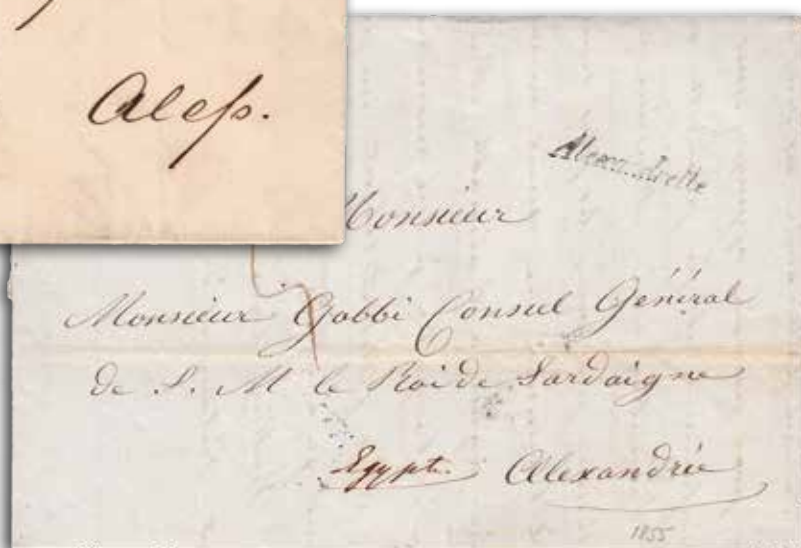 Alep.
Alexandrette
Monsieur
Monsieur Gobbi Consul Général
de S. M le Roi de Sardaigne
Egypt. Alexandrie
1855